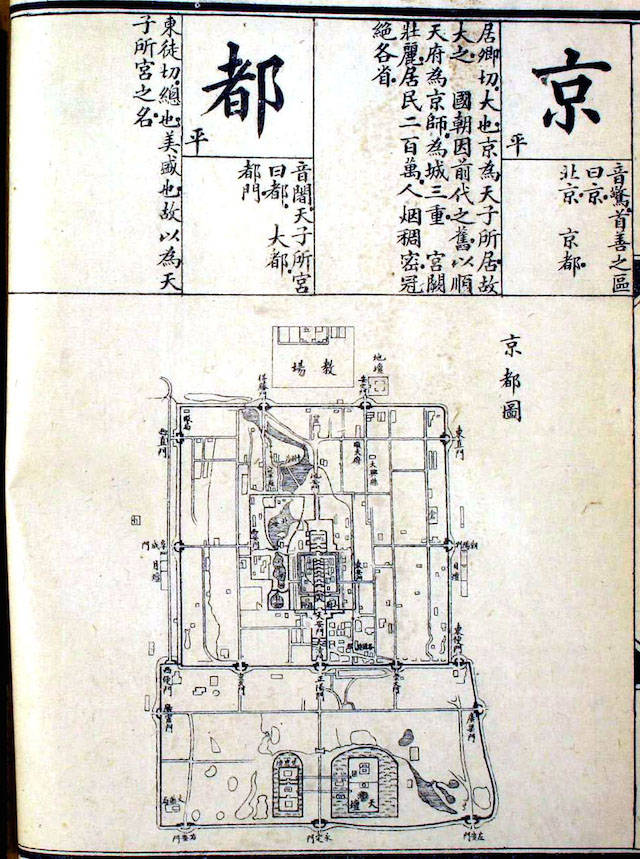 京
平
音驚首善之區
曰京
北京 京都
居卿切大也京為天子所居故
大之 國朝因前代之舊以順
天府為京師為城三重 宮闕
壯麗居民二百萬人烟稠密冠
絶各省
都
平
音闍天子所宮
曰都 大都
都門
東徒切總也美盛也故以為天
子所宮之名
京都圖
教場
地壇
安定門
德勝門
東直門
西直門
順天府
大興縣
地安門
北海
朝陽門
日壇
阜成門
月壇
東安門
西安門
天安門
東便門
西便門
正陽門
廣寧門
天壇
左安門
永定門
右安門